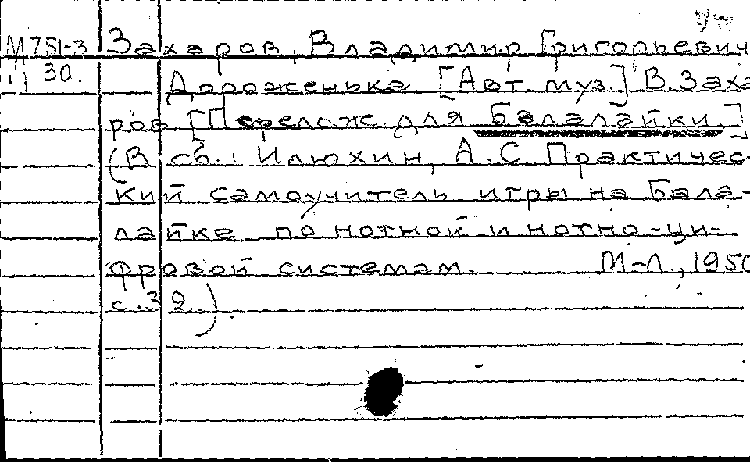 М751-3 Захаров, Владимир Григорьевич
30. Дороженька. [Авт. муз.] В. Заха-
ров [Перелож. для балалайки.]
(В сб.: Илюхин, А.С. Практичес-
кий самоучитель игры на бала-
лайке по нотной и нотно-ци-
фровой системам. М-Л., 1950
с. 39.)